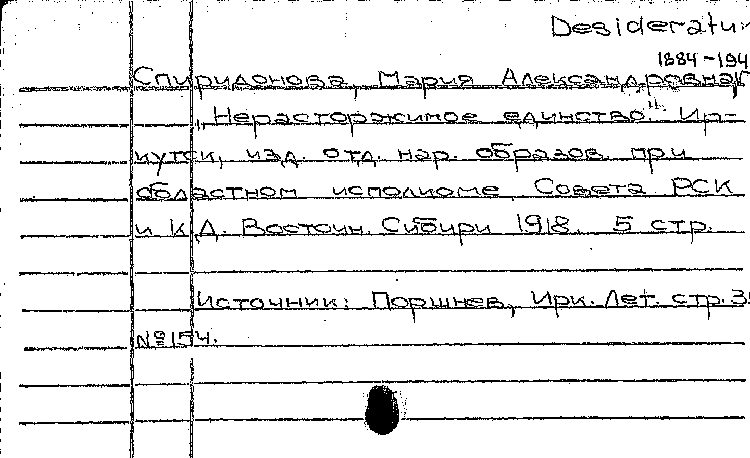 Desideratu
1884-194
Спиридонова, Мария Александровна
„Нерасторжимое единство". Ир-
кутск, изд. отд. нар. образов. при
областном исполкоме Совета РСК
и К.Д. Восточн. Сибири 1918. 5 стр.
Источник: Поршнев, Ирк. Лет. стр. 3
№154.